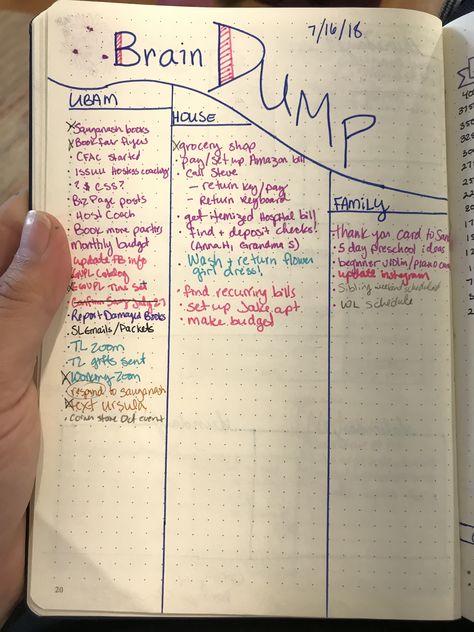 Brain Dump
7/16/18
UBAM
x Sauganash books
x Book fair flyers
· CFAC started
· Issuu Hostess coaching
· ? $ CSS?
· Biz Page posts
· Host Coach
· Book more parties
· monthly budget
· update FB info
Catalog
Confirm
· Report Damaged Books
· SL Emails/Packets
· TL zoom
· TL gifts sent
x Working Zoom
· respond to sauganash
x text ursula
· Corn store Oct event
HOUSE
x grocery shop
· pay/set up Amazon bill
· Call Steve
– return key/pay
– Return keyboard
· get itemized Hospital bill
· find + deposit checks!
(Anna H, Grandma S)
· Wash + return flower
girl dress!
· find recurring bills
· set up Jake apt
· make budget
FAMILY
· thank you card to
· 5 day preschool ideas
· beginner violin/piano
· update instagram
· Sibling weekend scheduled
· WL schedule
20